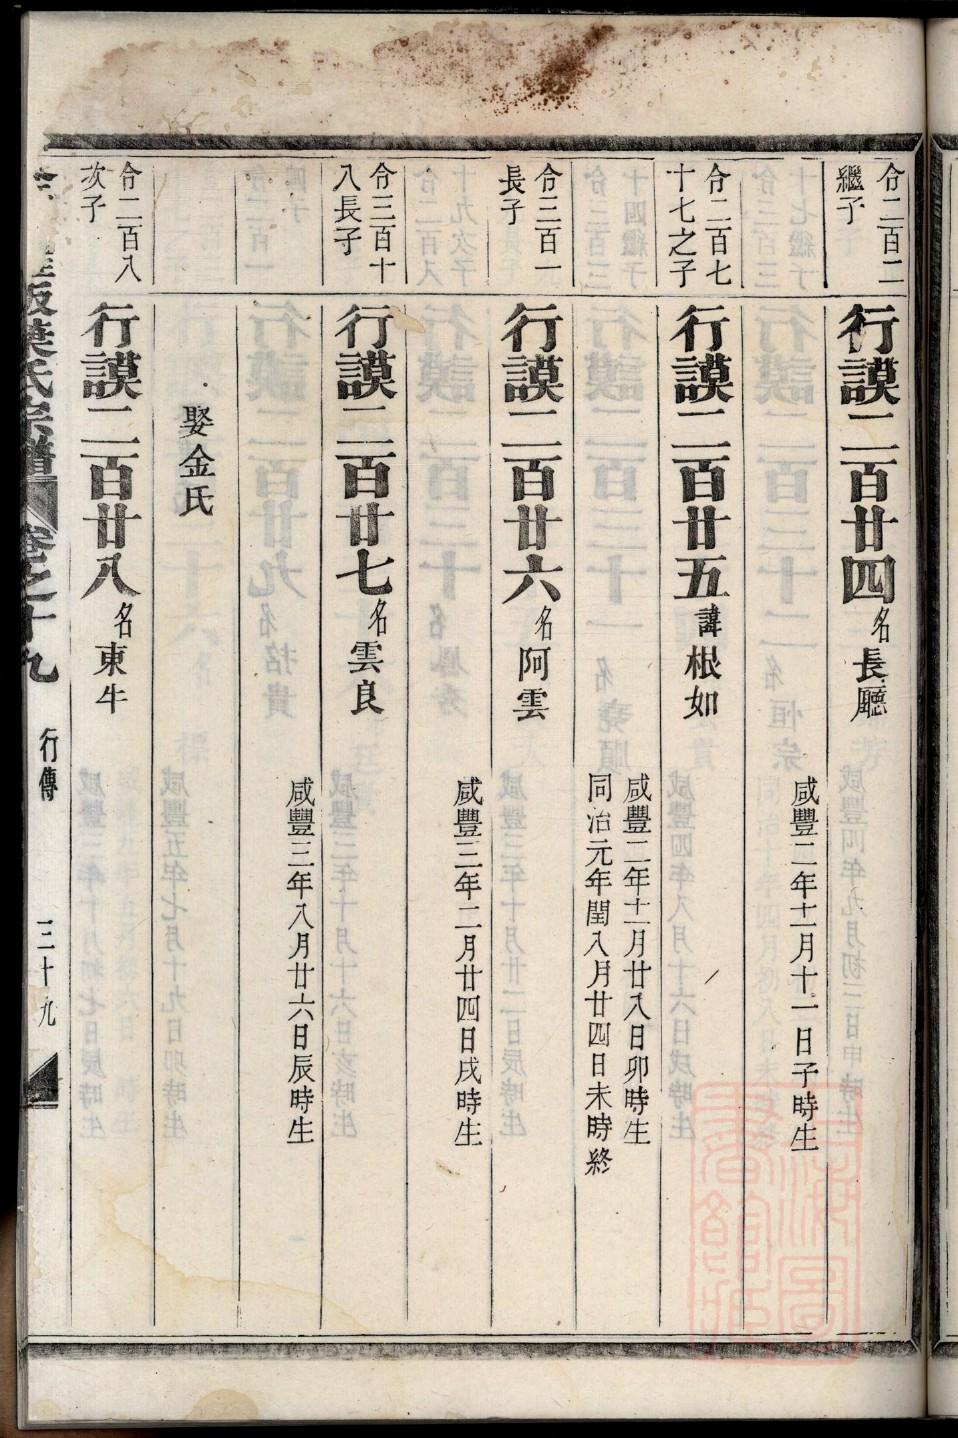 合二百二
繼子
行謨二百廿四名長廳
咸豐二年十一月十一日子時生
合二百七
十七之子
行謨二百廿五諱根如
咸豐二年十一月廿八日卯時生
同治元年閏八月廿四日未時終
合三百一
長子
行謨二百廿六名阿雲
咸豐三年二月廿四日戌時生
合三百十
八長子
行謨二百廿七名雲良
咸豐三年八月廿六日辰時生
娶金氏
合二百八
次子
行謨二百廿八名東牛
葉氏宗譜
卷之十九
行傳
三十九